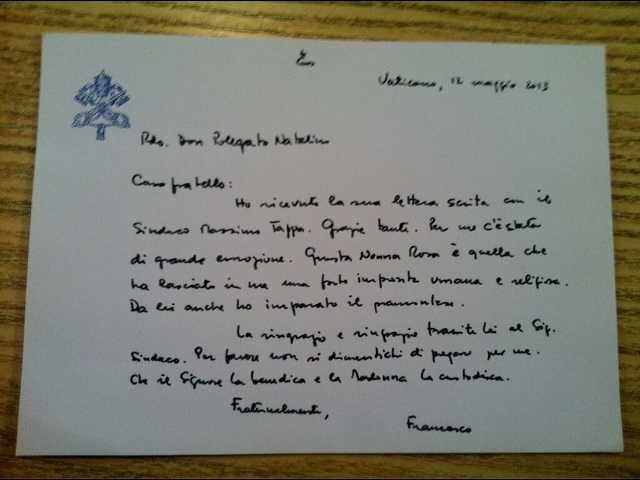 Vaticano, 12 maggio 2013
Rdo. Don Polegato Natalino
Caro fratello:
Ho ricevuto la sua lettera scritta con il
Sindaco Massimo Tappa. Grazie tante. Per me c'è stata
di grande emozione. Questa Nonna Rosa è quella che
ha lasciato in me una forte impronta umana e religiosa.
Da lei anche ho imparato il piamontese.
La ringrazio e ringrazio tramite Lei al Sig.
Sindaco. Per favore non si dimentichi di pregare per me.
Che il Signore La benedica e la Madonna La custodisca.
Fraternalmente,
Francesco